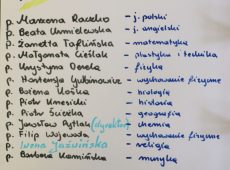 p. Marzena Raczko - j. polski
p. Beata Chmielewska - j. angielski
p. Żaneta Taflińska - matematyka
p. Małgorzata Cieślak - plastyka i technika
p. Krystyna - fizyka
p. Hortensja - wychowanie fizyczne
p. Bożena - biologia
p. Piotr - historia
p. Piotr - geografia
p. Jarosław (dyrektor) - chemia
p. Filip Wojewoda - wychowanie fizyczne
p. Iwona Jaźwińska - religia
p. Barbara Kamińska - muzyka